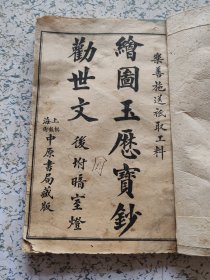 樂善施送祇取工料
繪圖玉歷寶鈔
勸世文
後坿暗室燈
上海
中原書局藏版